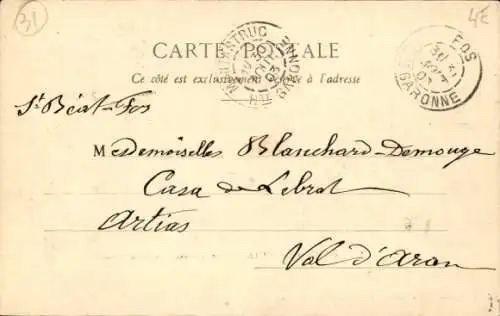 31
4E
CARTE POSTALE
Ce côté est exclusivement réservé à l'adresse
FOS
GARONNE
St Béat-Fos
Mesdemoiselles Blanchard-Demouge
Casa de Lebrat
Artias
Val d'Aran